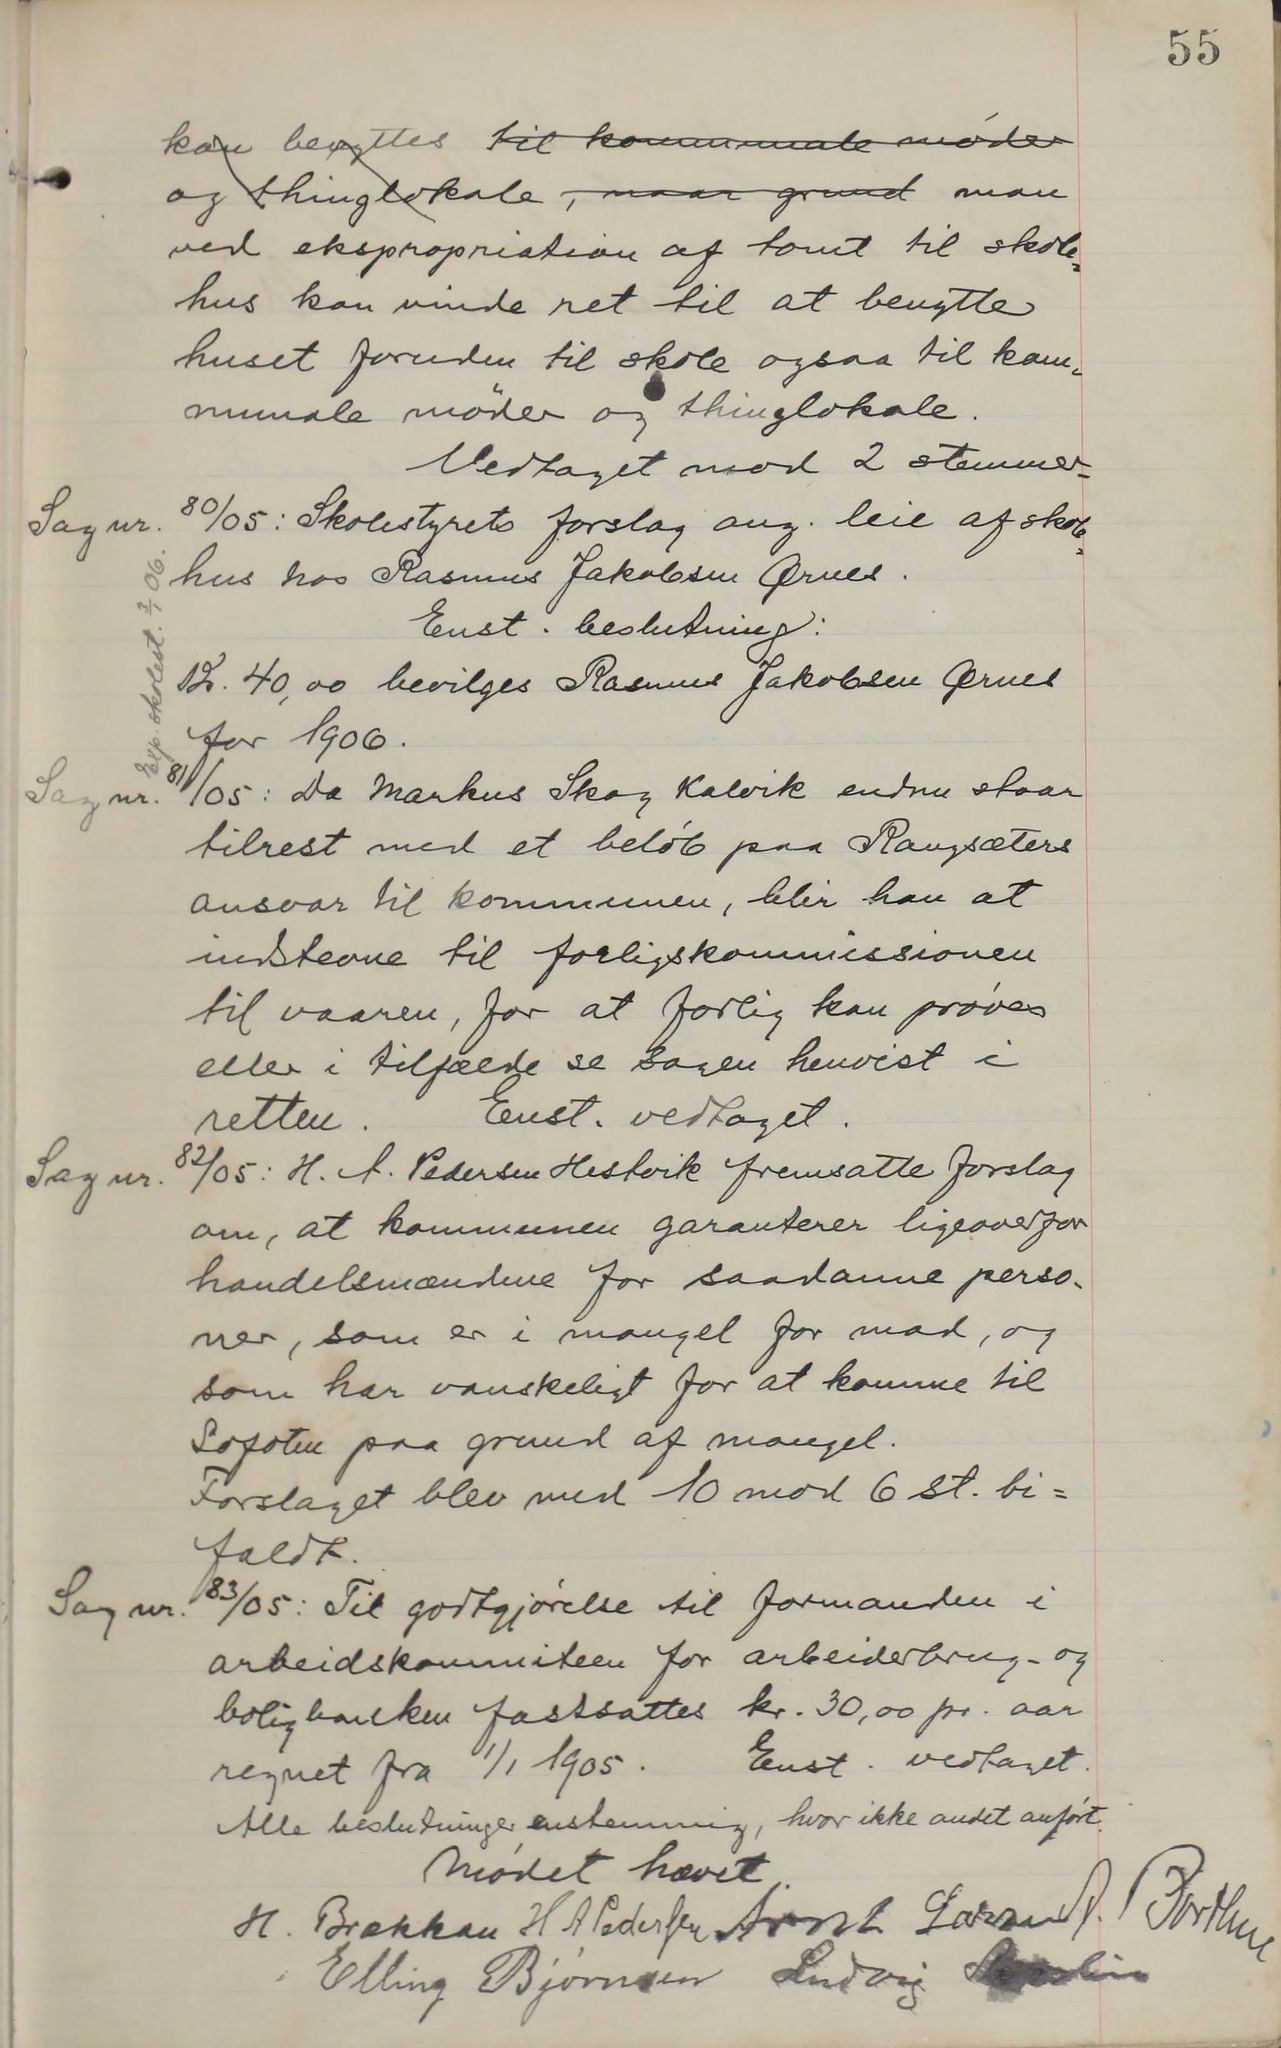 55
kan benyttes til kommunale møder
og thinglokale, naar grund man
ved ekspropriation af tomt til skole-
hus kan vinde ret til at benytte
huset foruden til skole ogsaa til kom-
munale møder og thinglokale.
Vedtaget mod 2 stemmer
Sag nr. 80/05: Skolestyrets forslag ang. leie af skole-
hus hos Rasmus Jakobsen Ørnes.
Exp. skolest. 3/1 06.
Enst. beslutning:
Kr. 40,00 bevilges Rasmus Jakobsen Ørnes
for 1906.
Sag nr. 81/05: Da Markus Skog Kalvik endnu staar
tilrest med et beløb paa Rangsæters
ansvar til kommunen, blir han at
indstevne til forligskommissionen
til vaaren, for at forlig kan prøves
eller i tilfælde se sagen henvist i
retten. Enst. vedtaget.
Sag nr. 82/05: H. A. Pedersen Hestvik fremsatte forslag
om, at kommunen garanterer ligeoverfor
handelsmændene for saadanne perso-
ner, som er i mangel for mad, og
som har vanskeligt for at komme til
Lofoten paa grund af mangel.
Forslaget blev med 10 mod 6 st. bi=
faldt.
Sag nr. 83/05: Til godtgjørelse til formanden i
arbeidskommiteen for arbeiderbrug- og
boligbanken fastsattes kr. 30,00 pr. aar
regnet fra 1/1 1905. Enst. vedtaget.
Alle beslutninger enstemmig, hvor ikke andet anført.
Mødet hævet.
H. Brækkan H A Pedersen Arnt
Elling Bjørnsen Ludvig